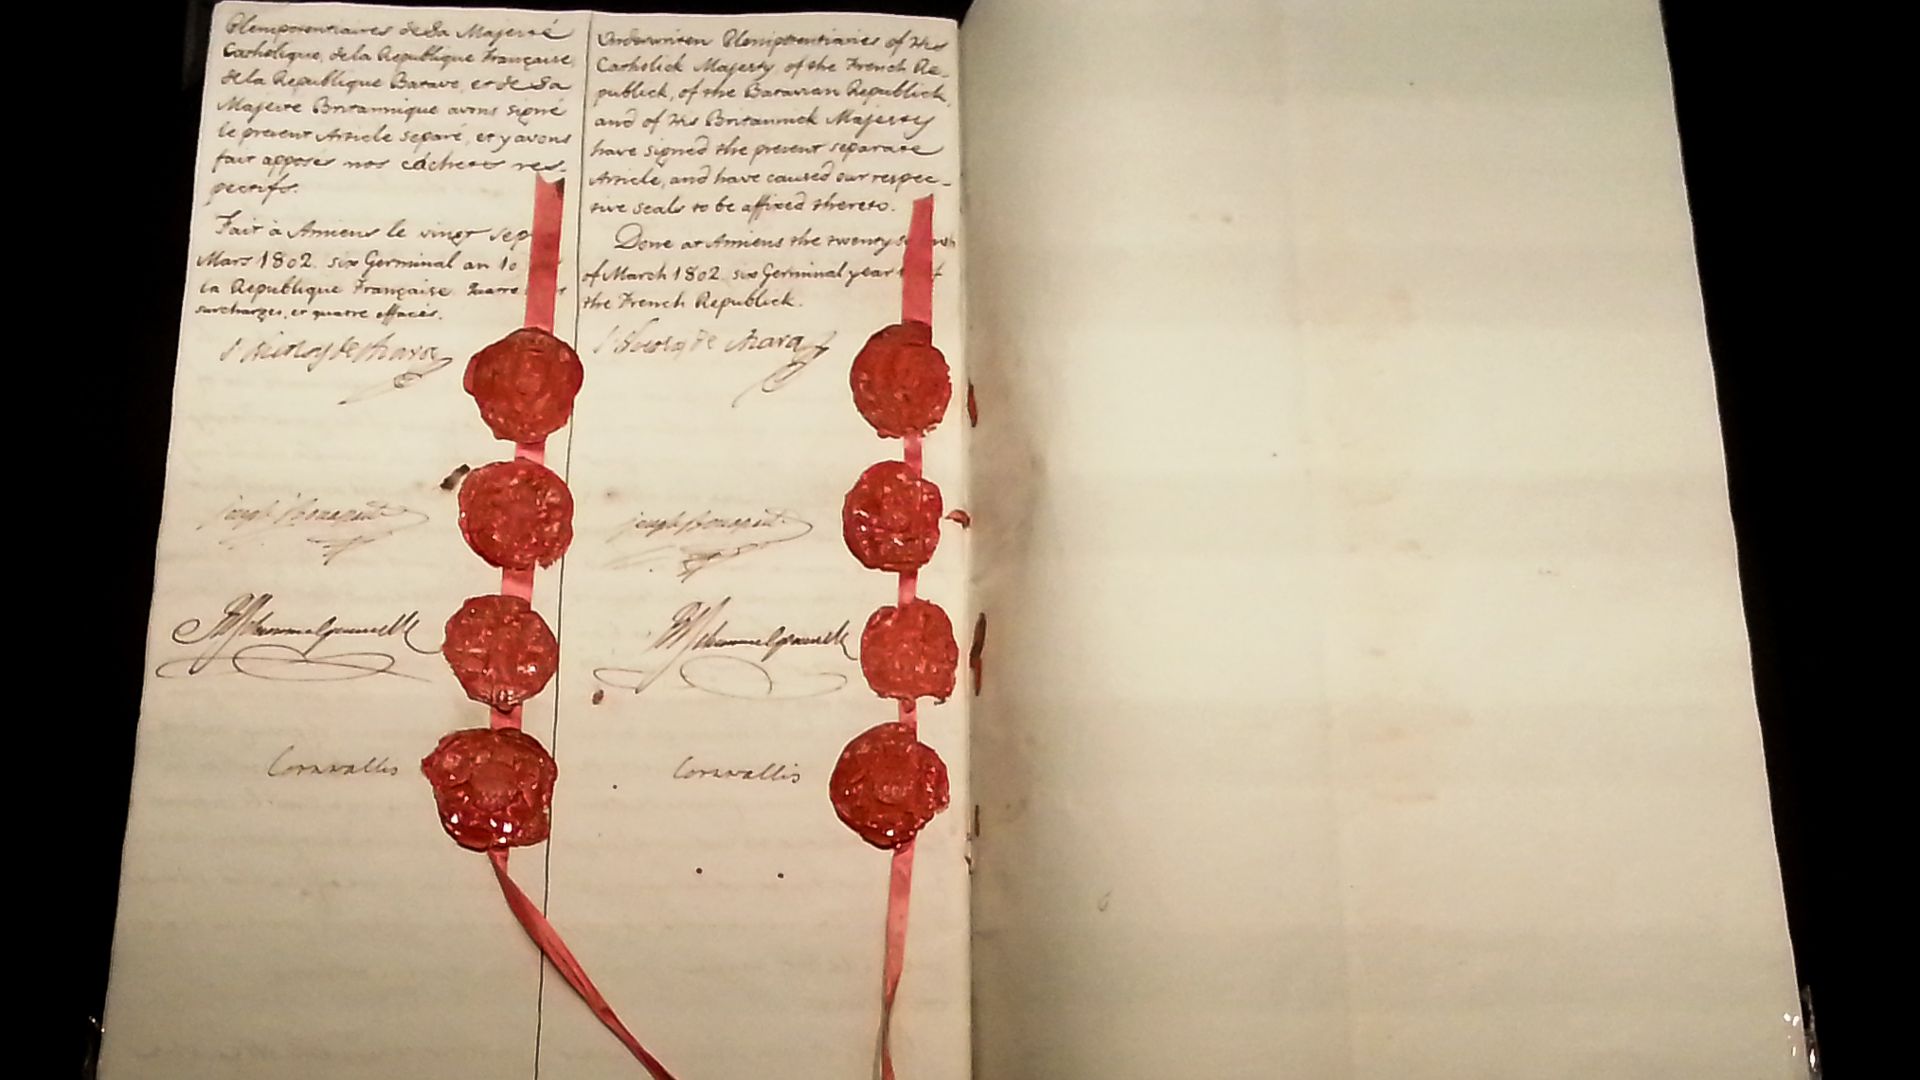 Plenipotentiaires de Sa Majesté
Catholique, de la Republique Française,
de la Republique Batave, et de Sa
Majesté Britannique avons signé
le present Article separé, et y avons
fait apposer nos cachets res-
pectifs.
Fait à Amiens le vingt sep
Mars 1802. six Germinal an 10
la Republique Française. Quatre
surcharges, et quatre effacés.
Cornwallis
Underwritten Plenipotentiaries of His
Catholick Majesty, of the French Re-
publick, of the Batavian Republick,
and of His Britannick Majesty
have signed the present separate
Article, and have caused our respec-
tive seals to be affixed thereto.
Done at Amiens the twenty
of March 1802. six Germinal year
the French Republick.
Cornwallis